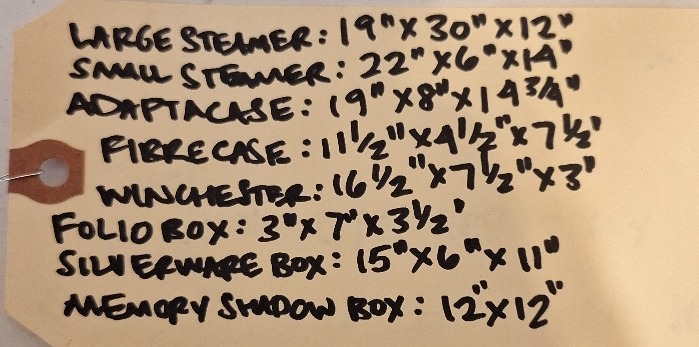 LARGE STEAMER: 19" X 30" X 12"
SMALL STEAMER: 22" X 6" X 14"
ADAPTACASE: 19" X 8" X 14 3/4"
FIBRE CASE: 11 1/2" X 4 1/2" X 7 1/2'
WINCHESTER: 16 1/2" X 7 1/2" X 3"
FOLIO BOX: 3" X 7" X 3 1/2'
SILVERWARE BOX: 15" X 6" X 11"
MEMORY SHADOW BOX: 12" X 12"